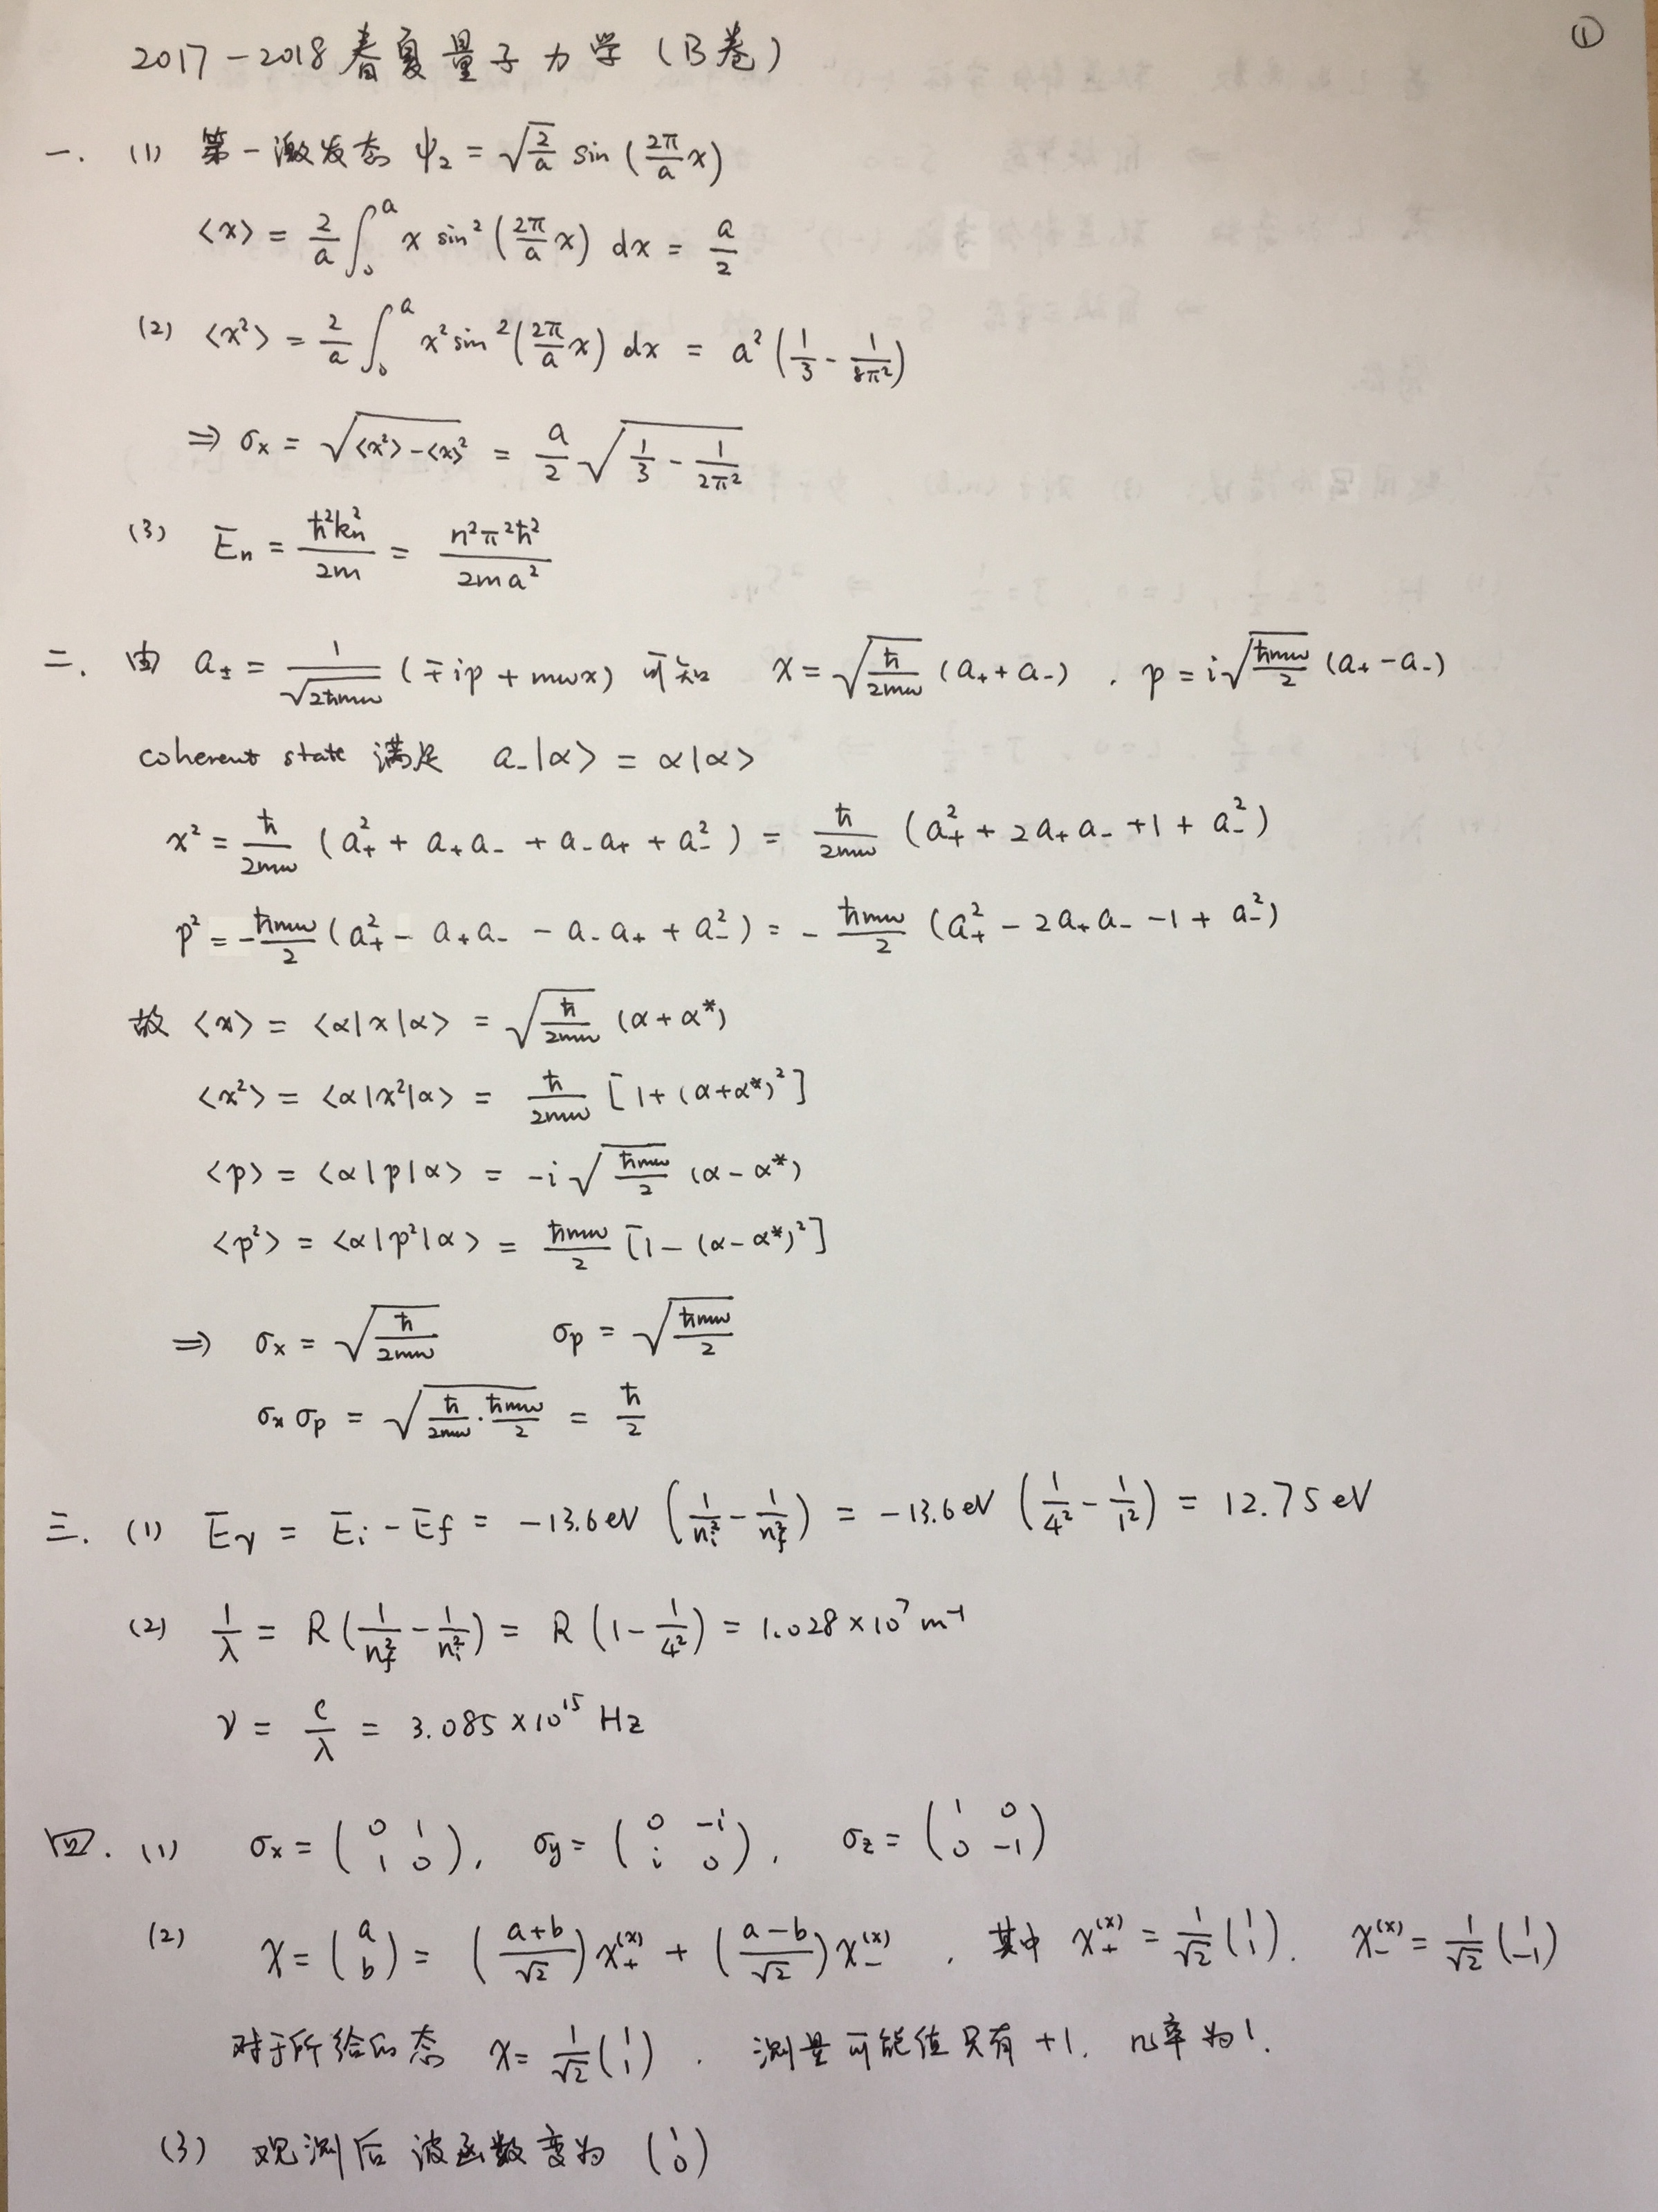 ①
2017-2018春夏量子力学(B卷)
一. (1) 第一激发态 ψ₂ = √(2/a) sin(2π/a x)
⟨x⟩ = 2/a ∫₀ᵃ x sin²(2π/a x) dx = a/2
(2) ⟨x²⟩ = 2/a ∫₀ᵃ x² sin²(2π/a x) dx = a²(1/3 - 1/8π²)
⇒ σx = √(⟨x²⟩-⟨x⟩²) = a/2 √(1/3 - 1/2π²)
(3) Eₙ = ħ²kₙ²/2m = n²π²ħ²/2ma²
二. 由 a± = 1/√(2ħmω) (∓ip + mωx) 可知 x = √(ħ/2mω) (a₊ + a₋), p = i√(ħmω/2) (a₊ - a₋)
coherent state 满足 a₋|α⟩ = α|α⟩
x² = ħ/2mω (a₊² + a₊a₋ + a₋a₊ + a₋²) = ħ/2mω (a₊² + 2a₊a₋ + 1 + a₋²)
p² = -ħmω/2 (a₊² - a₊a₋ - a₋a₊ + a₋²) = - ħmω/2 (a₊² - 2a₊a₋ - 1 + a₋²)
故 ⟨x⟩ = ⟨α|x|α⟩ = √(ħ/2mω) (α + α*)
⟨x²⟩ = ⟨α|x²|α⟩ = ħ/2mω [1+(α+α*)²]
⟨p⟩ = ⟨α|p|α⟩ = -i√(ħmω/2) (α - α*)
⟨p²⟩ = ⟨α|p²|α⟩ = ħmω/2 [1-(α-α*)²]
⇒ σx = √(ħ/2mω) σp = √(ħmω/2)
σx σp = √(ħ/2mω · ħmω/2) = ħ/2
三. (1) Eγ = Ei - Ef = -13.6eV (1/ni² - 1/nf²) = -13.6eV (1/4² - 1/1²) = 12.75eV
(2) 1/λ = R(1/nf² - 1/ni²) = R(1 - 1/4²) = 1.028×10⁷m⁻¹
ν = c/λ = 3.085×10¹⁵Hz
四. (1) σx = (0 1; 1 0), σy = (0 -i; i 0), σz = (1 0; 0 -1)
(2) χ = (a; b) = ((a+b)/√2) χ₊⁽ˣ⁾ + ((a-b)/√2) χ₋⁽ˣ⁾, 其中 χ₊⁽ˣ⁾ = 1/√2 (1; 1), χ₋⁽ˣ⁾ = 1/√2 (1; -1)
对于所给的态 χ = 1/√2 (1; 1), 测量可能值只有+1, 几率为1.
(3) 观测后波函数变为 (1; 0)